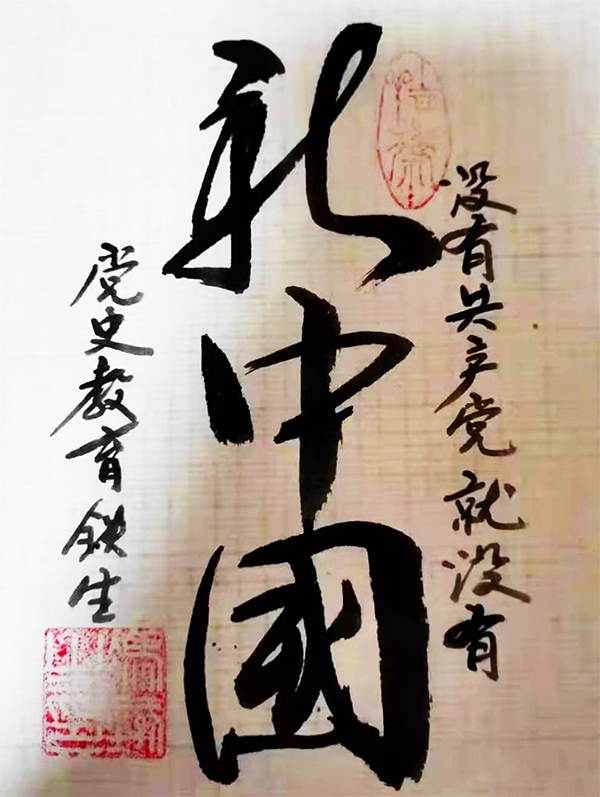 没有共产党就没有
新中國
党史教育铁生